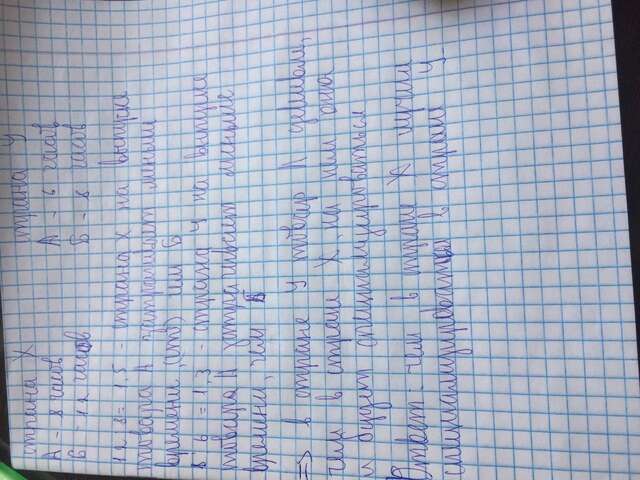 страна X страна У
А - 8 часов А - 6 часов
Б - 12 часов Б - 8 часов
12 : 8 = 1,5 - страна X на выпуске
товара А затрачивает меньше
времени, чем Б
8 : 6 = 1,3 - страна У на выпуске
товара А затрачивает меньше
времени, чем Б
=> в стране У товар А дешевле,
чем в стране X, на нём она
и будет специализироваться
Ответ: чем в стране X лучше
специализироваться в стране У